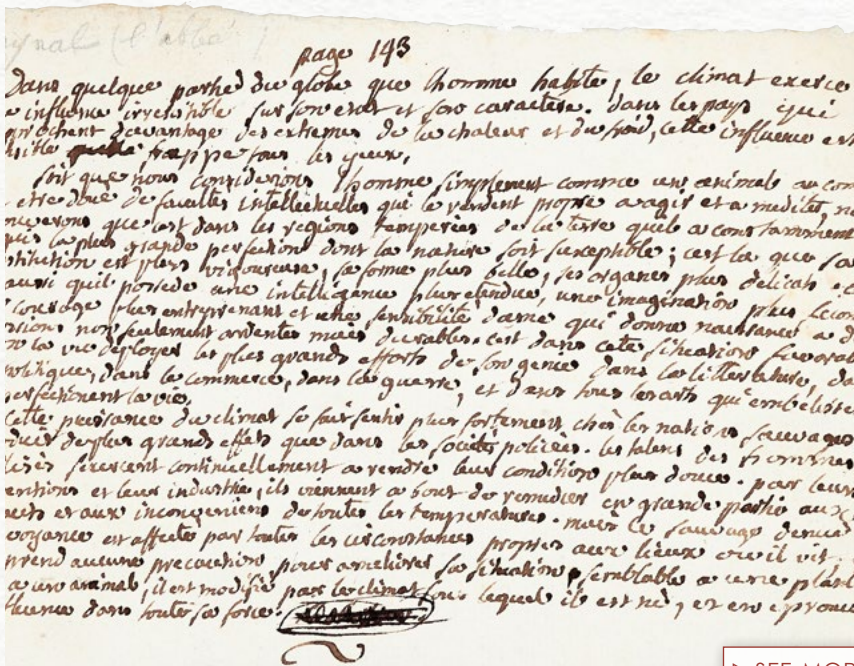 ynal (l'abbé )
page 143
Dans quelque parthed du globe que l'homme habite, le climat exerce
e influence irresistible sur son etat et son caractere. dans les pays qui
prochent davantage des extremes de la chaleur et du froid, cette influence est
sible frappe tous les yeux.
soit que nous considerions l'homme simplement comme un animal ou com
etre doué de facultes intellectuelles qui le rendent propre a agir et a mediter, no
uverons que c'est dans les regions temperées de la terre qu'il a constamment
quis la plus grande perfection dont la nature soit susceptible; c'est la que sa
stitution est plus vigoureuse, sa forme plus belle, ses organes plus delicats. c
aussi qu'il possede une intelligence plus etendue, une imagination plus fecon
courage plus entreprenant et une sensibilité d'ame qui donne naissance a d
ssions non seulement ardentes mais durables. c'est dans cete situation favorab
la vie deployer les plus grands efforts de son genie dans la litterature, da
politique, dans le commerce, dans la guerre, et dans tous les arts qui embelisse
perfectionent la vie.
cette puissance du climat se fait sentir plus fortement chés les nations sauvages
oduit de plus grands effets que dans les societés policées. les talens des hommes
lisés s'exercent continuellement a rendre leur condition plus douce. par leurs
ventions et leur industrie, ils viennent a bout de remedier en grande partie aux
et aux inconveniens de toutes les temperatures. mais le sauvage denué
voyance est affecté par toutes les circonstances propres aux lieux ou il vit.
prend aucune precaution pour ameliorer sa situation semblable a une plant
a un animal, il est modifié par le climat sous lequel il est né, et en eprouv
fluence dans toute sa force.
SEE MOR